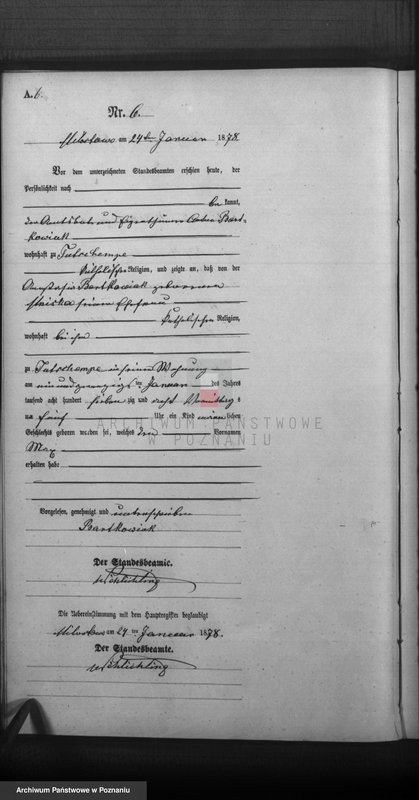 A. 6.
Nr. 6.
Miloslaw am 24ten Januar 1878.
Vor dem unterzeichneten Standesbeamten erschien heute, der
Persönlichkeit nach
be kannt,
der Amtsbote und Eigenthümer Bart-
kowiak
wohnhaft zu
katholischer Religion, und zeigte an, daß von der
Anastasia Bartkowiak geborenen
seiner Ehefrau
katholischer Religion,
wohnhaft bei ihm
zu in seiner Wohnung
am ein und zwanzigsten Januar des Jahres
tausend acht hundert sieben zig und acht Vormittag s
um fünf Uhr ein Kind männlichen
Geschlechts geboren worden sei, welches den Vornamen
Max
erhalten habe
ARCHIWUM PAŃSTWOWE
W POZNANIU
Vorgelesen, genehmigt und unterschrieben
Bartkowiak
Der Standesbeamte.
Schlichting
Die Uebereinstimmung mit dem Hauptregister beglaubigt
Miloslaw am 24 ten Januar 1878.
Der Standesbeamte.
Schlichting
Archiwum Państwowe w Poznaniu